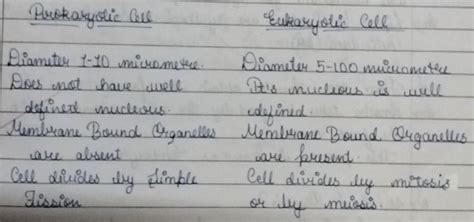 Prokaryotic Cell Eukaryotic Cell
Diameter 1-10 micrometre. Diameter 5-100 micrometre
Does not have well It's nucleous is well
defined nucleous. defined.
Membrane Bound Organelles Membrane Bound Organelles
are absent are present.
Cell divides by simple Cell divides by mitosis
Fission or by meiosis.